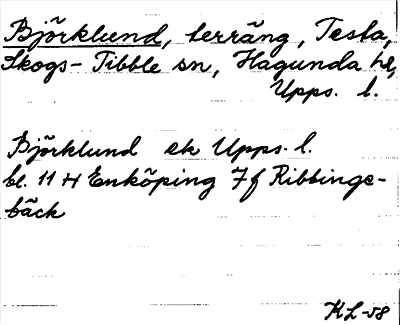 Björklund, terräng, Testa,
Skogs-Tibble sn, Hagunda hd,
Upps. l.
Björklund ek Upps. l.
bl. 11 H Enköping 7f Ribbinge-
bäck
KL-58